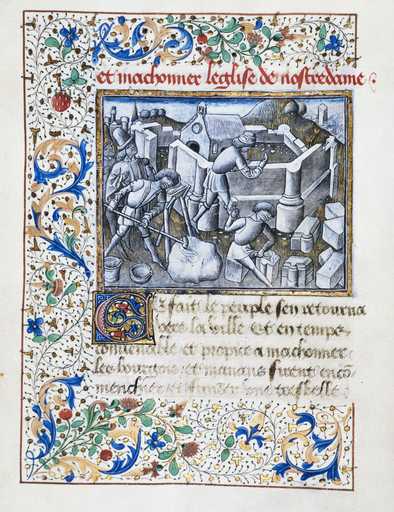 et machonner leglise de nostredame
Ce fait le peuple sen retourna
vers la ville Et en temps
conuenable et propice a machonner
les bourgois et manans firent enco(m)
mencher et fonder une tresbelle